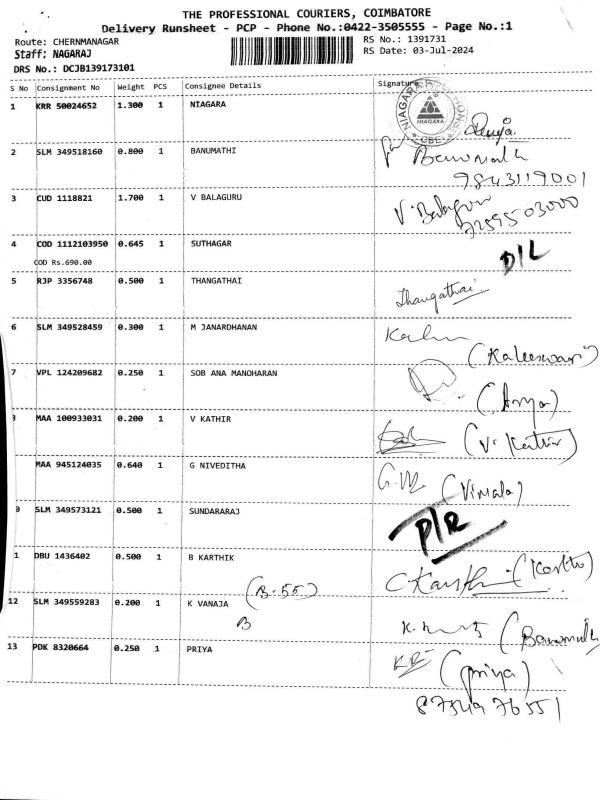 THE PROFESSIONAL COURIERS, COIMBATORE
Delivery Runsheet - PCP - Phone No.:0422-3505555 - Page No.:1
Route: CHERNMANAGAR RS No.: 1391731
Staff: NAGARAJ RS Date: 03-Jul-2024
DRS No.: DCJB139173101
S No Consignment No Weight PCS Consignee Details Signature
1 KRR 50024652 1.300 1 NIAGARA NIAGARA
2 SLM 349518160 0.800 1 BANUMATHI Banumathi
9843119001
3 CUD 1118821 1.700 1 V BALAGURU V. Balaguru
4 COD 1112103950 0.645 1 SUTHAGAR D/L
COD Rs.690.00
5 RJP 3356748 0.500 1 THANGATHAI Thangathai
6 SLM 349528459 0.300 1 M JANARDHANAN (Kaleeswari)
7 VPL 124209682 0.250 1 SOB ANA MANOHARAN
MAA 100933031 0.200 1 V KATHIR (V. Kathir)
MAA 945124035 0.640 1 G NIVEDITHA (Vimala)
0 SLM 349573121 0.500 1 SUNDARARAJ D/R
1 DBU 1436402 0.500 1 B KARTHIK
(B-55)
12 SLM 349559283 0.200 1 K VANAJA
B
13 PDK 8320664 0.250 1 PRIYA (priya)